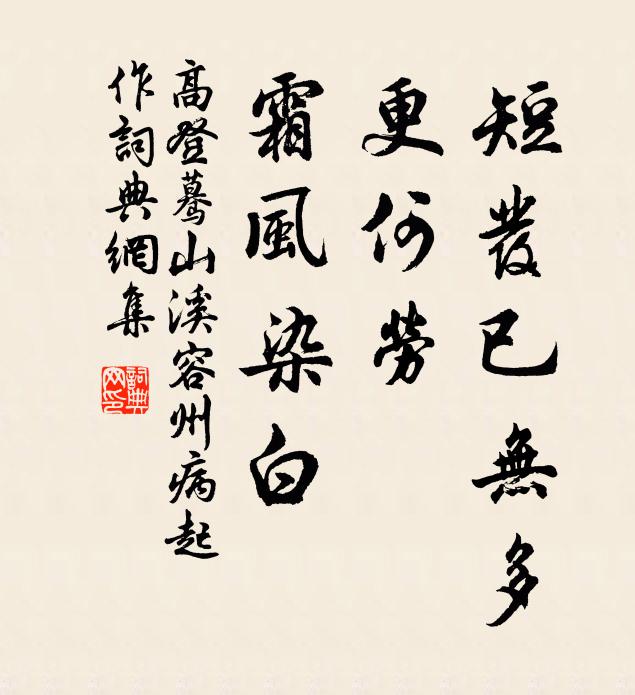 短發已無多
更何勞
霜風染白
高登蓦山溪容州病起
作詞典網集
詞典網印